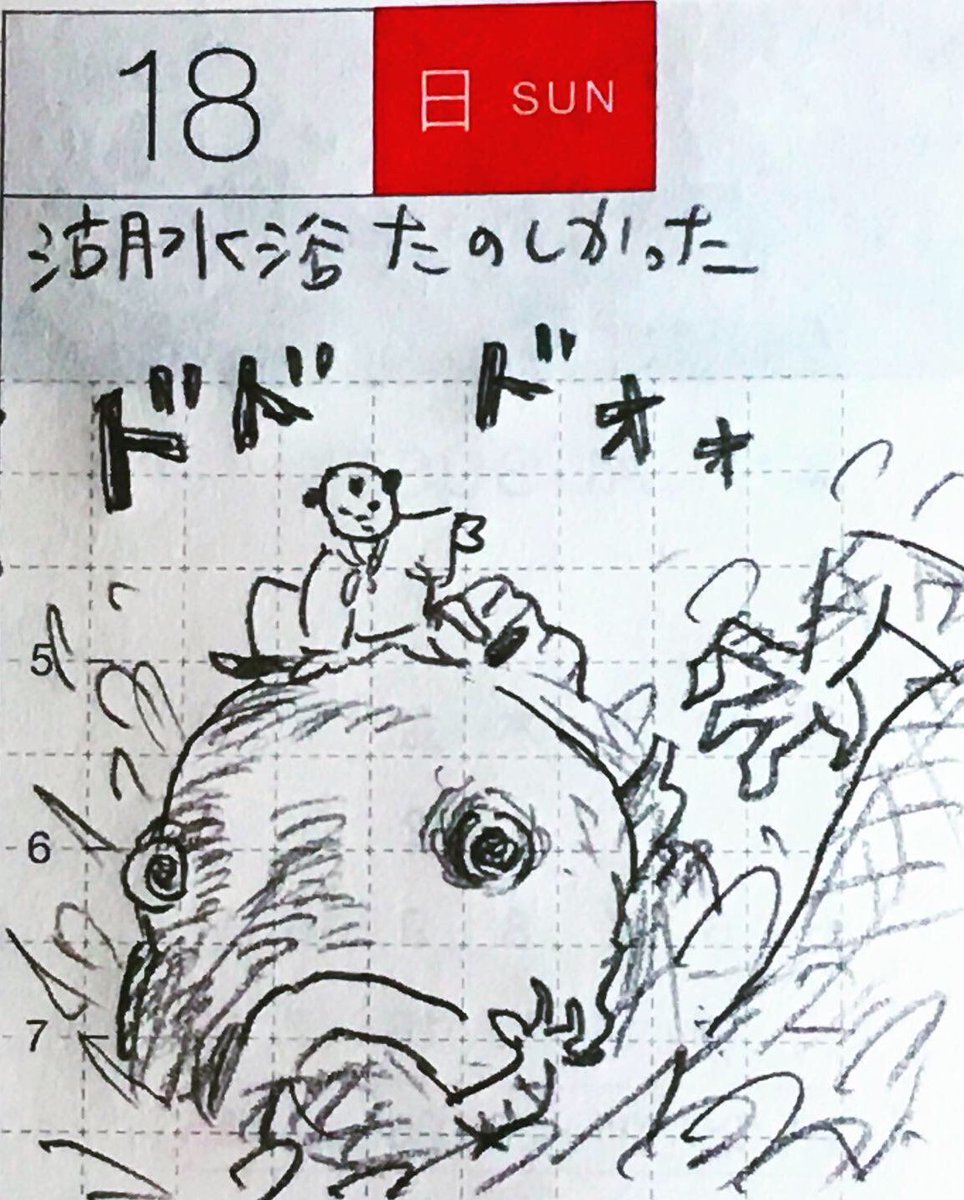 18
日 SUN
湖水浴たのしかった
ドド ドォォ
5
6
7